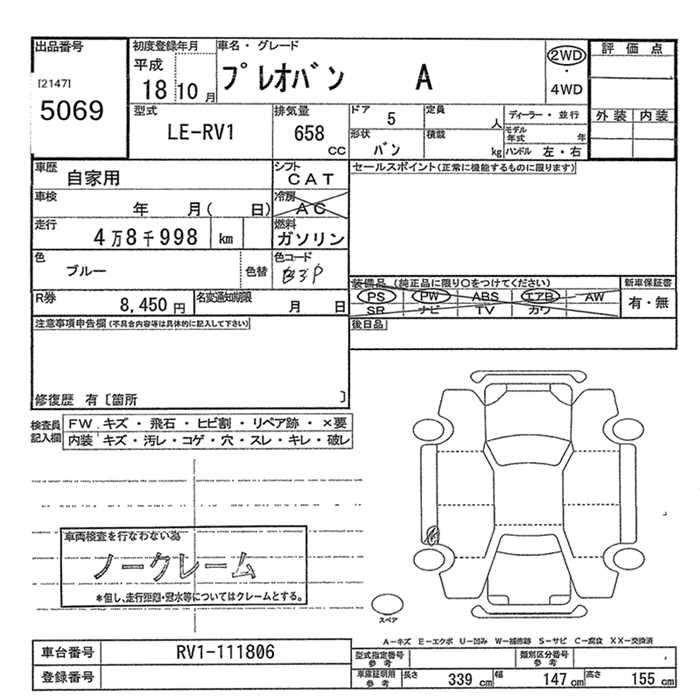 出品番号
[2147]
5069
初度登録年月
平成
18 10月
車名・グレード
プレオバン A
2WD
・
4WD
評価点
外装 内装
型式
LE-RV1
排気量
658
CC
ドア 5
形状 バン
定員 人
積載 kg
ディーラー・並行
モデル年式 年
ハンドル 左・右
車歴
自家用
シフト
CAT
車検
年 月( 日)
冷房
AC
走行
4万8千998 km
燃料
ガソリン
色
ブルー
色替
色コード
B3P
R券
8,450円
名変通知期限
月 日
セールスポイント(正常に機能するものに限ります)
装備品 (純正品に限り○をつけてください)
PS PW ABS エアB AW
SR ナビ TV カワ
新車保証書
有・無
後日品
注意事項申告欄(不具合内容等は具体的に記入して下さい)
修復歴 有〔箇所 〕
検査員記入欄
FW.キズ・飛石・ヒビ割・リペア跡・×要
内装 キズ・汚レ・コゲ・穴・スレ・キレ・破レ
車両検査を行なわない為
ノークレーム
*但し、走行距離・冠水等についてはクレームとする。
スペア
A-キズ E-エクボ U-凹み W-補修跡 S-サビ C-腐食 XX-交換済
車台番号
RV1-111806
登録番号
型式指定番号
参考
類別区分番号
参考
車庫証明用
参考
長さ 339 cm
幅 147 cm
高さ 155 cm